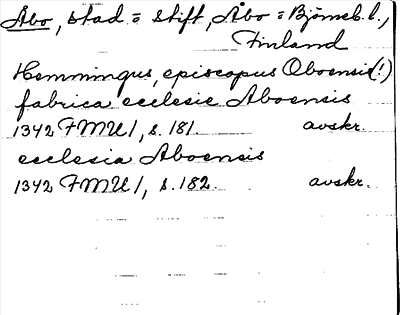 Åbo, stad = stift, Åbo = Björneb. l.,
Finland
Hemmingus, episcopus Oboensis(!)
fabrica ecclesie Aboensis
1342 FMU 1, s. 181. avskr.
ecclesia Aboensis
1342 FMU 1, s. 182. avskr.